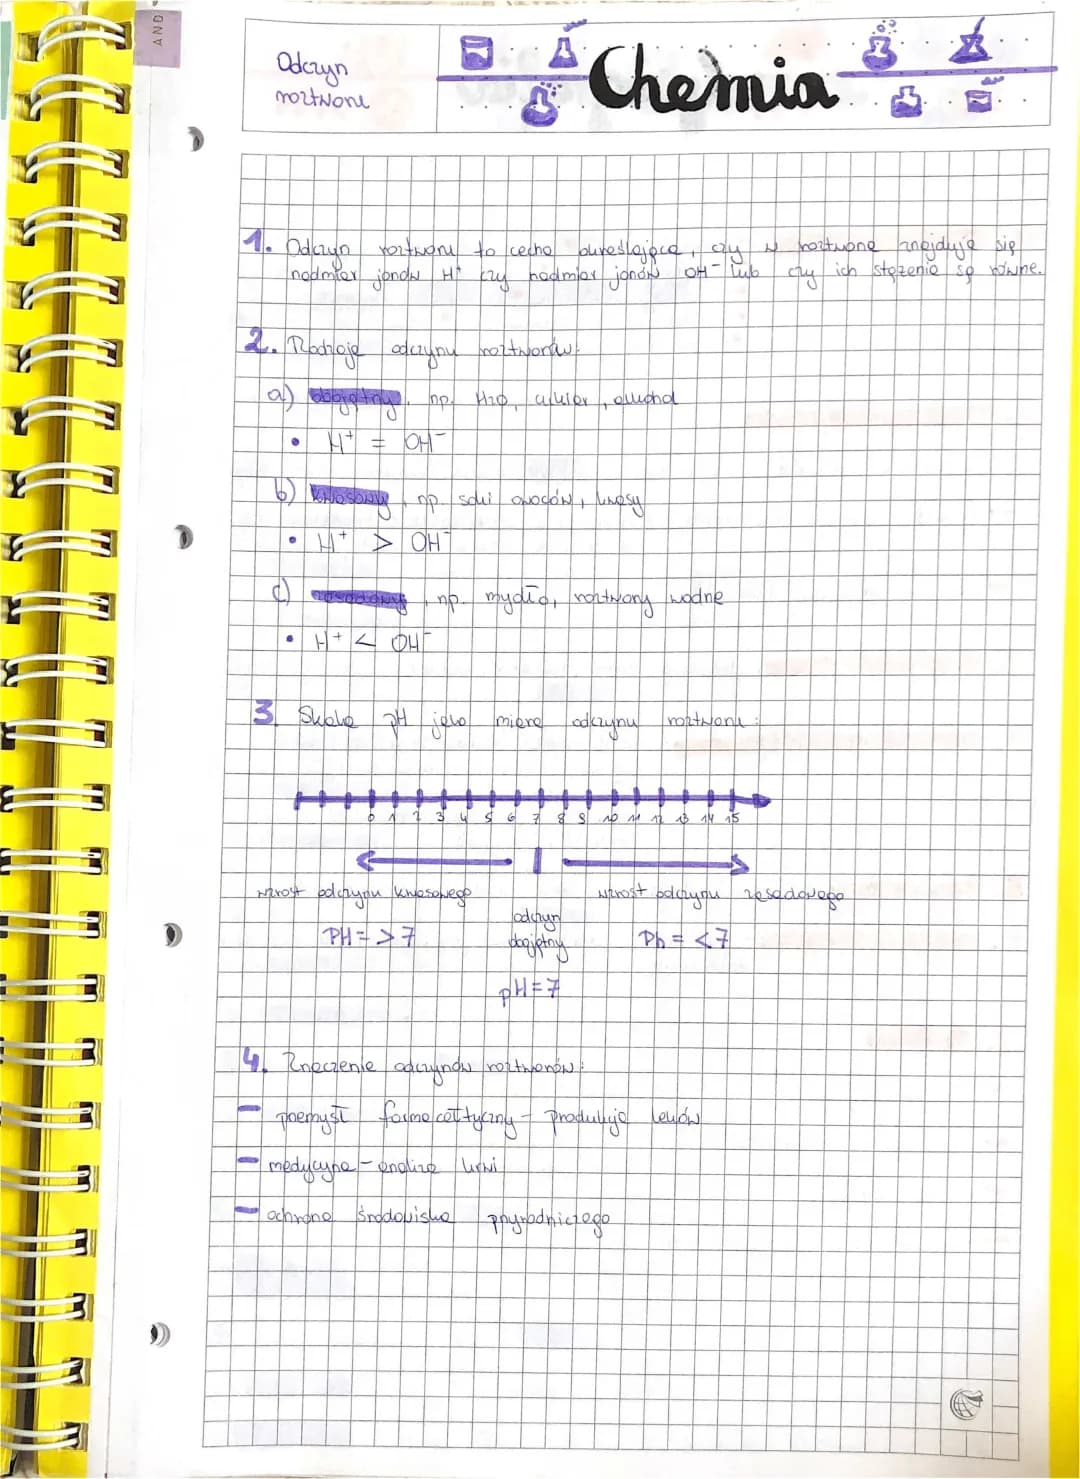 AND
Odczyn
roztworu
Chemia
1. Odczyn roztworu to cecha określająca, czy w roztworze znajduje się
nadmiar jonów H⁺ czy nadmiar jonów OH⁻ lub czy ich stężenie są równe.
2. Rodzaje odczynu roztworów:
a) obojętny, np. H2O, cukier, alkohol
• H⁺ = OH⁻
b) kwasowy, np. soki owoców, kwasy
• H⁺ > OH⁻
c) zasadowy, np. mydło, roztwory wodne
• H⁺ < OH⁻
3 Skala pH jako miara odczynu roztworu:
0 1 2 3 4 5 6 7 8 9 10 11 12 13 14 15
wzrost odczynu kwasowego
wzrost odczynu zasadowego
odczyn
obojętny
PH = > 7
Ph = < 7
pH = 7
4. Znaczenie odczynów roztworów:
- przemysł farmaceutyczny - produkcja leków
- medycyna - analiza krwi
- ochrona środowiska przyrodniczego